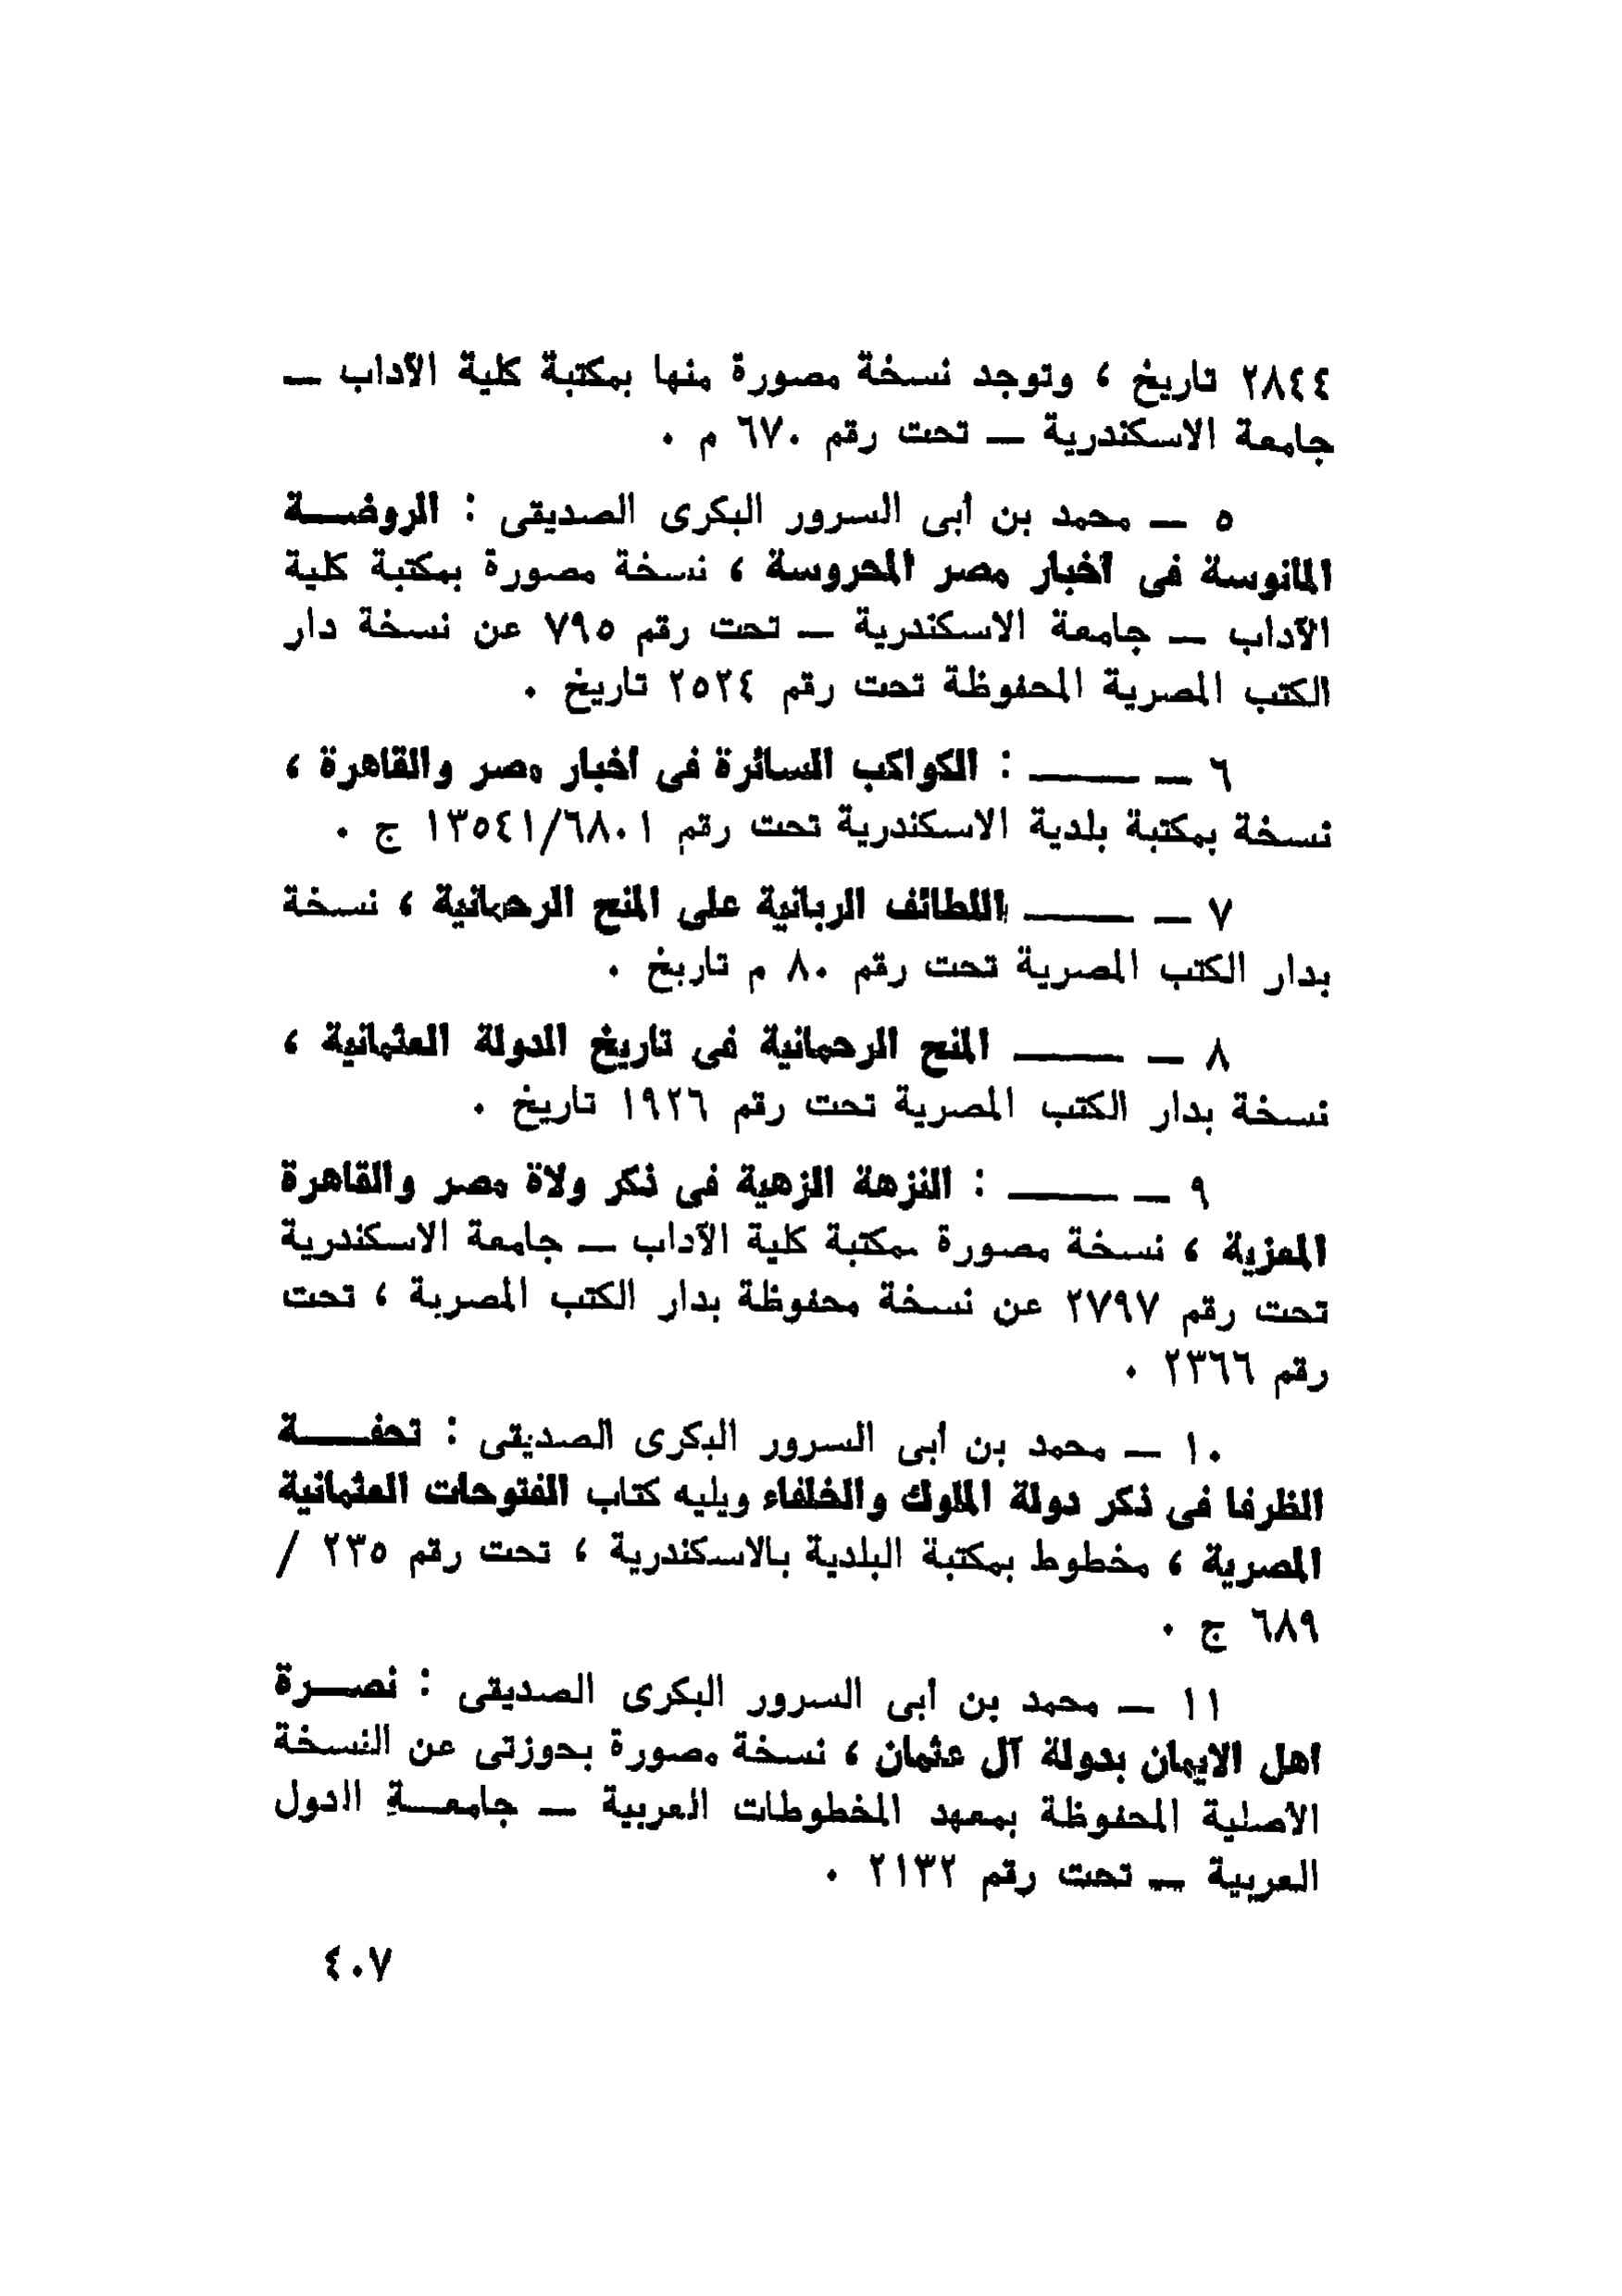 ٢٨٤٤ تاريخ ، وتوجد نسخة مصورة منها بمكتبة كلية الآداب —
جامعة الاسكندرية — تحت رقم ٦٧٠ م ٠
٥ — محمد بن أبى السرور البكرى الصديقى : الروضـــة
المانوسة فى أخبار مصر المحروسة ، نسخة مصورة بمكتبة كلية
الآداب — جامعة الاسكندرية — تحت رقم ٧٩٥ عن نسخة دار
الكتب المصرية المحفوظة تحت رقم ٢٥٢٤ تاريخ ٠
٦ — ——— : الكواكب السائرة فى أخبار مصر والقاهرة ،
نسخة بمكتبة بلدية الاسكندرية تحت رقم ١٣٥٤١/٦٨٠١ ج ٠
٧ — ——— اللطائف الربانية على المنح الرحمانية ، نسخة
بدار الكتب المصرية تحت رقم ٨٠ م تاريخ ٠
٨ — ——— المنح الرحمانية فى تاريخ الدولة العثمانية ،
نسخة بدار الكتب المصرية تحت رقم ١٩٢٦ تاريخ ٠
٩ — ——— : النزهة الزهية فى ذكر ولاة مصر والقاهرة
المعزية ، نسخة مصورة بمكتبة كلية الآداب — جامعة الاسكندرية
تحت رقم ٢٧٩٧ عن نسخة محفوظة بدار الكتب المصرية ، تحت
رقم ٢٣٦٦ ٠
١٠ — محمد بن أبى السرور البكرى الصديقى : تحفـــة
الظرفا فى ذكر دولة الملوك والخلفاء ويليه كتاب الفتوحات العثمانية
المصرية ، مخطوط بمكتبة البلدية بالاسكندرية ، تحت رقم ٢٣٥ /
٦٨٩ ج ٠
١١ — محمد بن أبى السرور البكرى الصديقى : نصــرة
اهل الايمان بدولة آل عثمان ، نسخة مصورة بحوزتى عن النسخة
الأصلية المحفوظة بمعهد المخطوطات العربية — جامعــة الدول
العربية — تحت رقم ٢١٣٢ ٠
٤٠٧